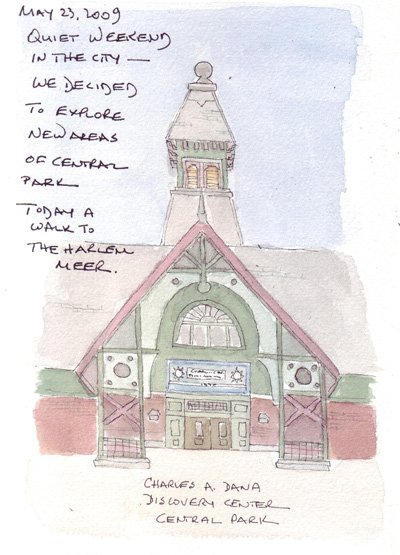 MAY 23, 2009
QUIET WEEKEND
IN THE CITY —
WE DECIDED
TO EXPLORE
NEW AREAS
OF CENTRAL
PARK
TODAY A
WALK TO
THE HARLEM
MEER.
CHARLES A. DANA
DISCOVERY CENTER
CENTRAL PARK